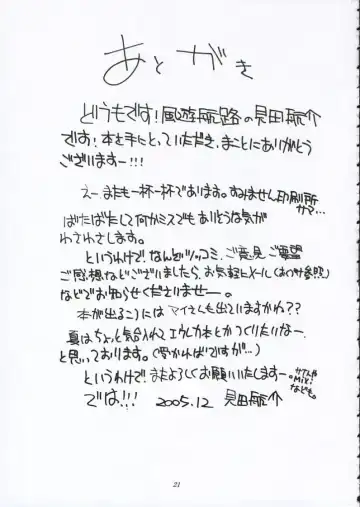 あとがき
どうもです!風遊旅路の見田航介
です!本を手にとっていただき、まことにありがとう
ございますー!!!
えー、またも一杯一杯であります。すみません印刷所
サマ…
ばたばたして何かミスでもありそうな気が
わさわさします。
というわけで、なんぞツッコミ、ご意見、ご要望
ご感想などございましたら、お気軽にメール(おくづけ参照)
などでお知らせくださいませー。
本が出るころにはマイさんも出ていますかね??
夏はちょっと気合入れてエウレカ本とかつくりたいなー、
と思っております。(受かればですが…)
というわけで、またよろしくお願いいたしますー。
サイトや
Mixi
なども。
では!!! 2005.12 見田航介
21